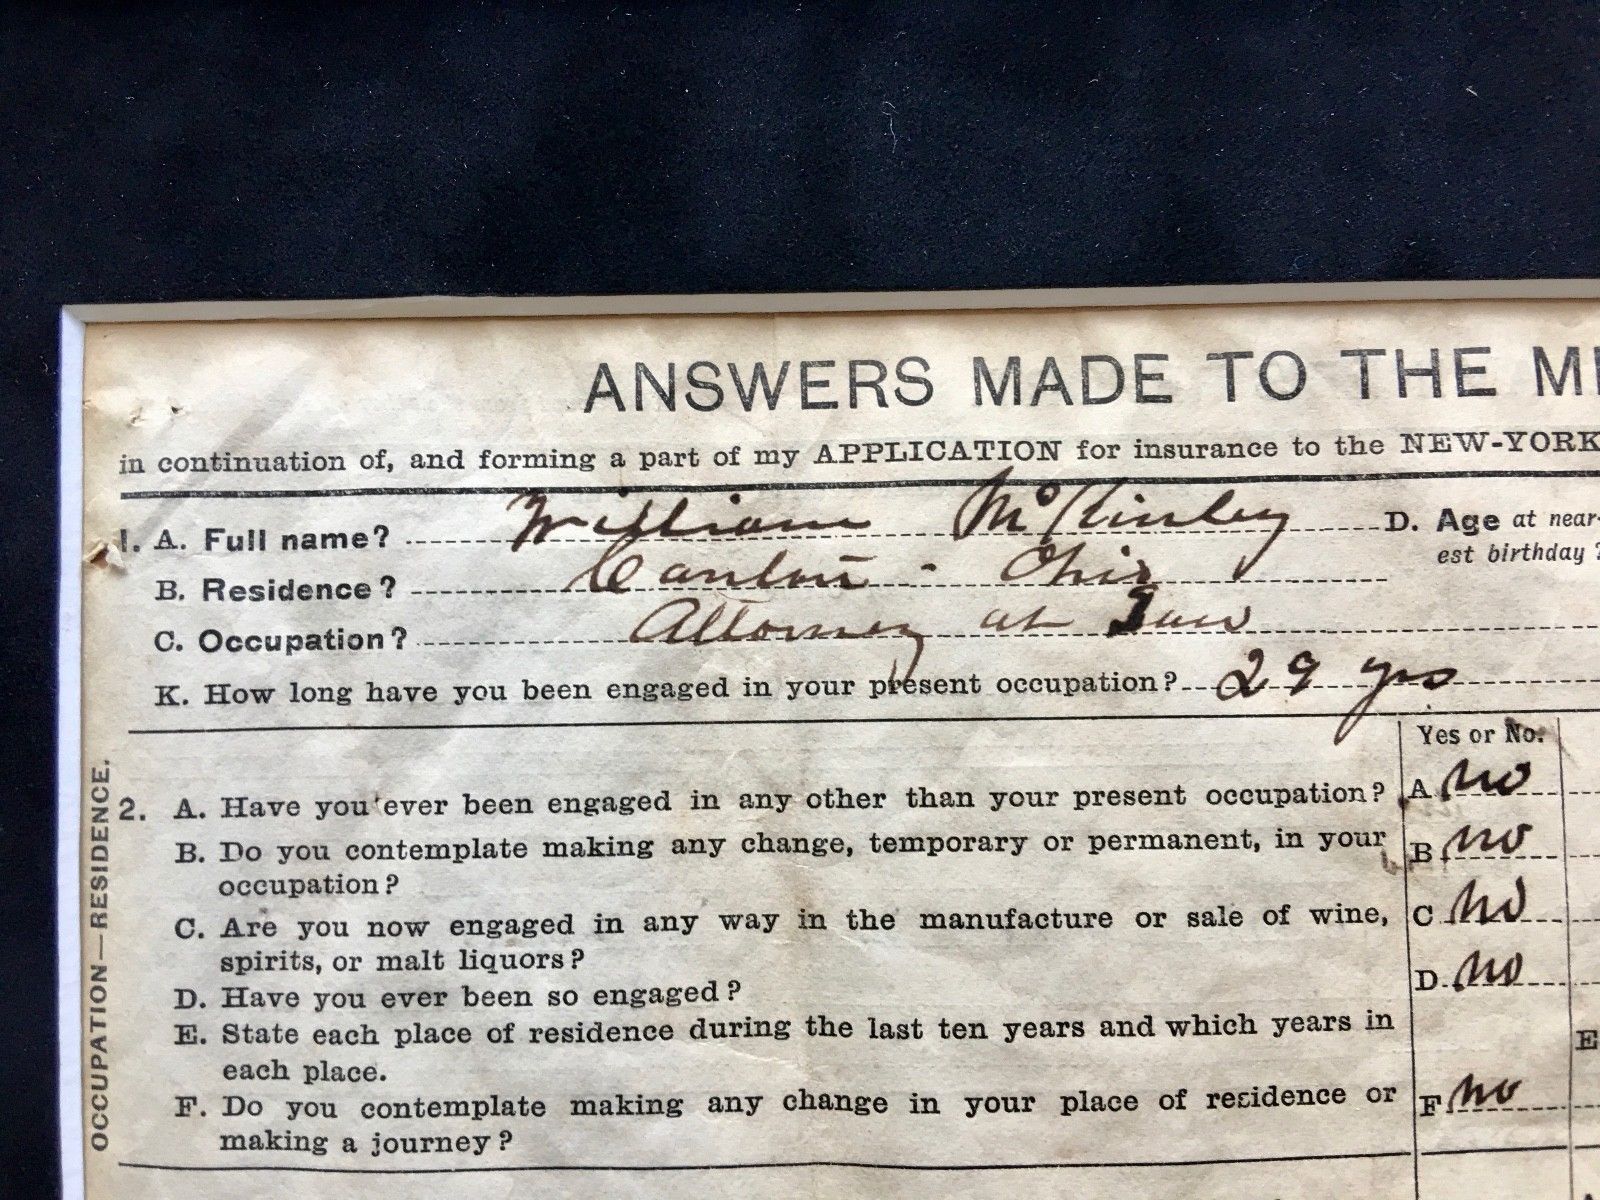 ANSWERS MADE TO THE M
in continuation of, and forming a part of my APPLICATION for insurance to the NEW-YORK
1. A. Full name? William McKinley D. Age at near-
est birthday?
B. Residence? Canton - Ohio
C. Occupation? Attorney at Law
K. How long have you been engaged in your present occupation? 29 yrs
OCCUPATION—RESIDENCE.
Yes or No.
2. A. Have you ever been engaged in any other than your present occupation? A no
B. Do you contemplate making any change, temporary or permanent, in your
occupation? B no
C. Are you now engaged in any way in the manufacture or sale of wine, C no
spirits, or malt liquors?
D. Have you ever been so engaged? D no
E. State each place of residence during the last ten years and which years in
each place. E
F. Do you contemplate making any change in your place of residence or F no
making a journey?